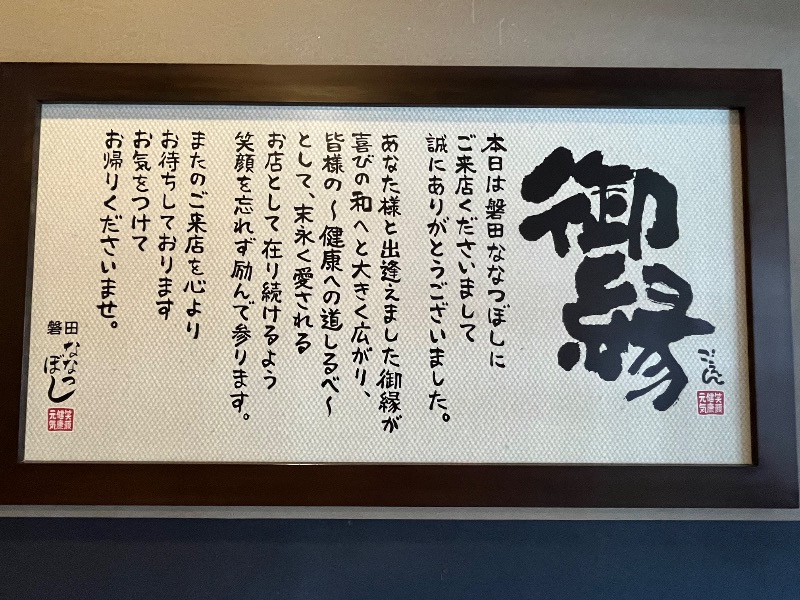 御縁
ごえん
笑顔
健康
元気
本日は磐田ななつぼしに
ご来店くださいまして
誠にありがとうございました。
あなた様と出逢えました御縁が
喜びの和へと大きく広がり、
皆様の〜健康への道しるべ〜
として、末永く愛される
お店として在り続けるよう
笑顔を忘れず励んで参ります。
またのご来店を心より
お待ちしております
お気をつけて
お帰りくださいませ。
磐田
ななつ
ぼし
笑顔
健康
元気